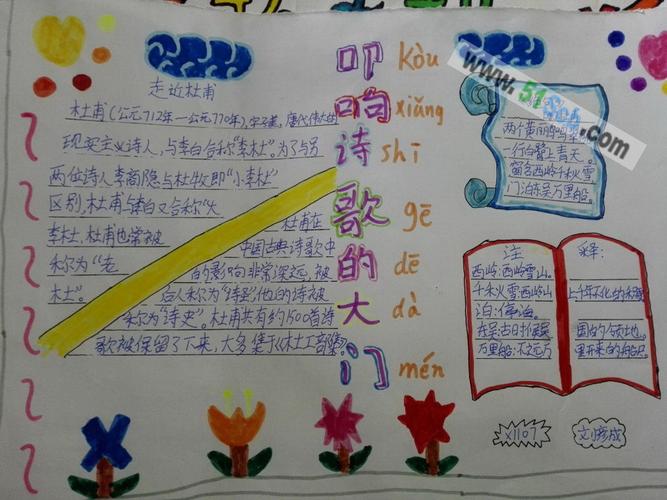 走近杜甫
杜甫(公元712年一公元770年),字子美,唐代伟大的
现实主义诗人,与李白合称"李杜"。为了与另
两位诗人李商隐与杜牧即"小李杜"
区别,杜甫与李白又合称"大
李杜,杜甫也常被
称为"老
杜"。
杜甫在
中国古典诗歌中
的影响非常深远,被
后人称为"诗圣"他的诗被
称为"诗史"。杜甫共有约1500首诗
歌被保留了下来,大多集于《杜工部集》。
叩 kòu
响 xiǎng
诗 shī
歌 gē
的 dē
大 dà
门 mén
www.51Sch.com
两个黄鹂鸣
一行白鹭上青天。
西岭千秋雪
门泊东吴万里船
注 释:
西岭:西岭雪山。
千秋雪:西岭山
泊:停泊。
万里船:不远万
上千年不化的积雪
里开来的船只
X1107
刘彦成